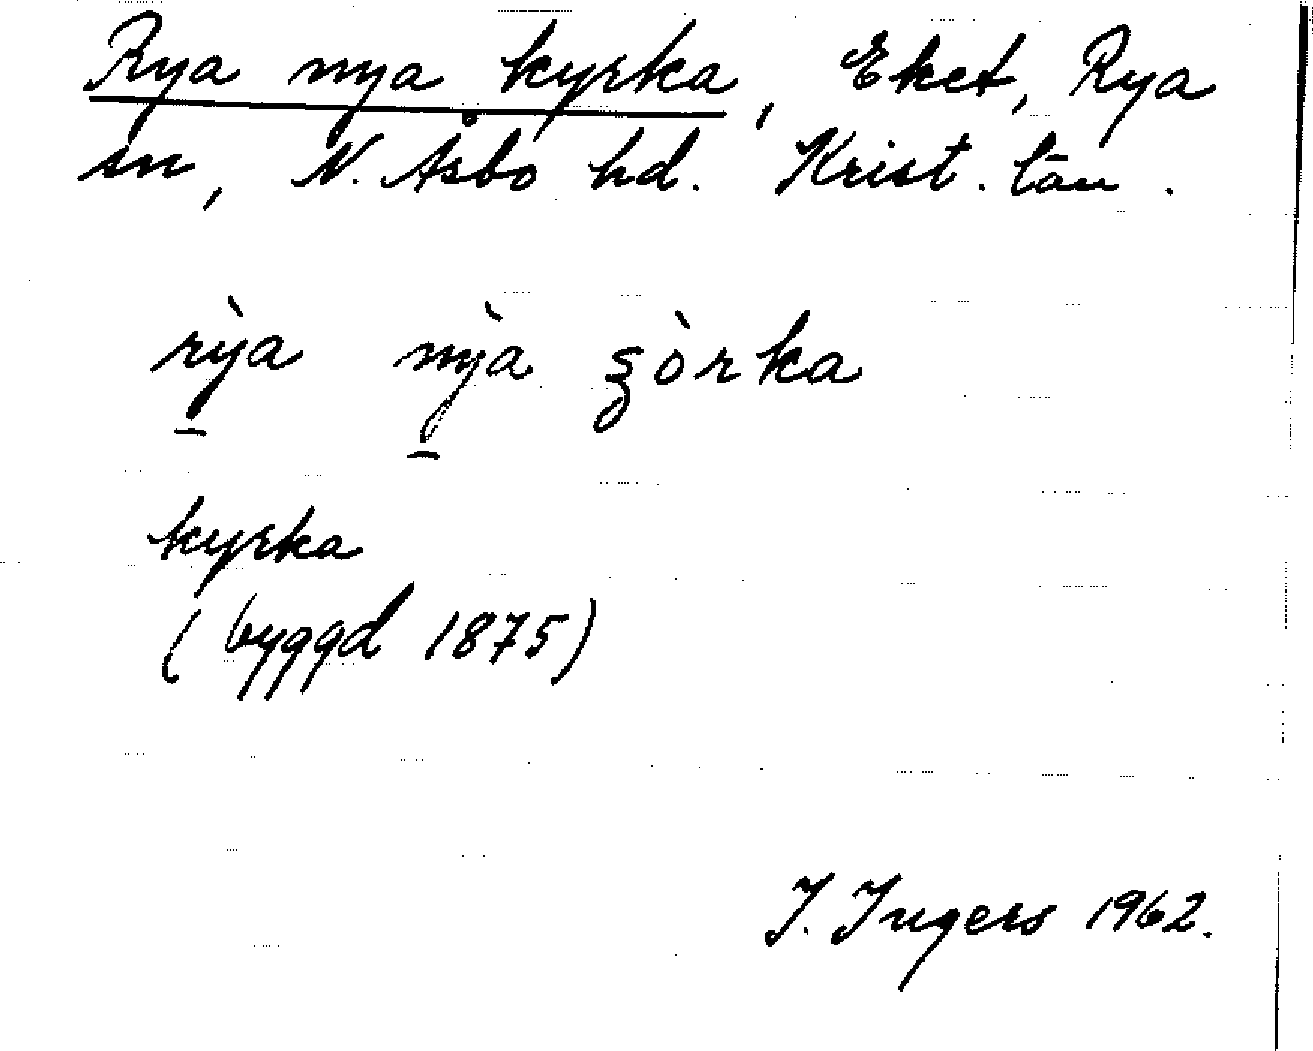 Rya nya kyrka, Eket, Rya
sn, N. Åsbo hd. Krist. län.
rỳ̱a nỳ̱a ʒòrka
kyrka
(byggd 1875)
I. Ingers 1962.